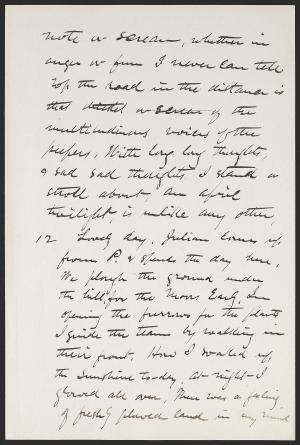 note or scream, whether in
anger or fun I never can tell
Top the road in the distance is
that or scream of the
multitudinous voices of the
peepers. With long long thoughts,
& sad sad thoughts I stand or
stroll about, an april
twilight is unlike any other,
12 Lovely day. Julian comes up,
from P. & spends the day here,
We plough the ground under
the hill for the Moors Early. In
opening the furrows for the plants
I guide the team by walking in
their front. How I soaked up,
the sunshine to-day. At-night-I
glowed all over. There was a feeling
of freshly plowed land in my mind